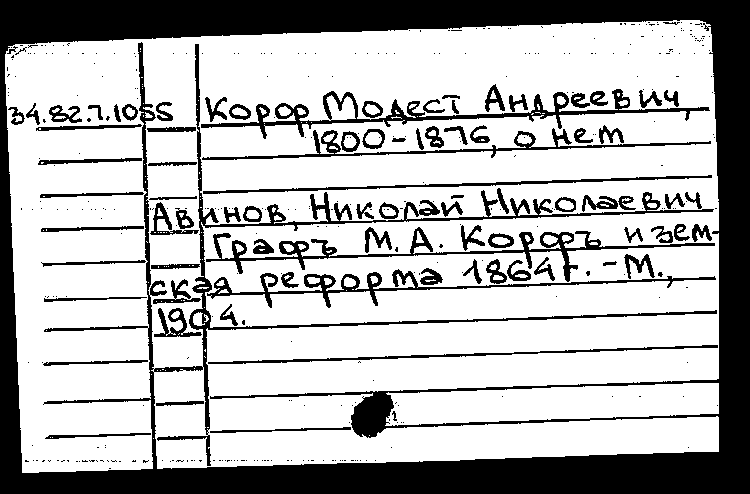 34.82.7.1055 Корор, Модест Андреевич,
1800-1876, о нем
Авинов, Николай Николаевич
Графъ М. А. Короръ и зем-
ская реформа 1864 г. - М.,
1904.